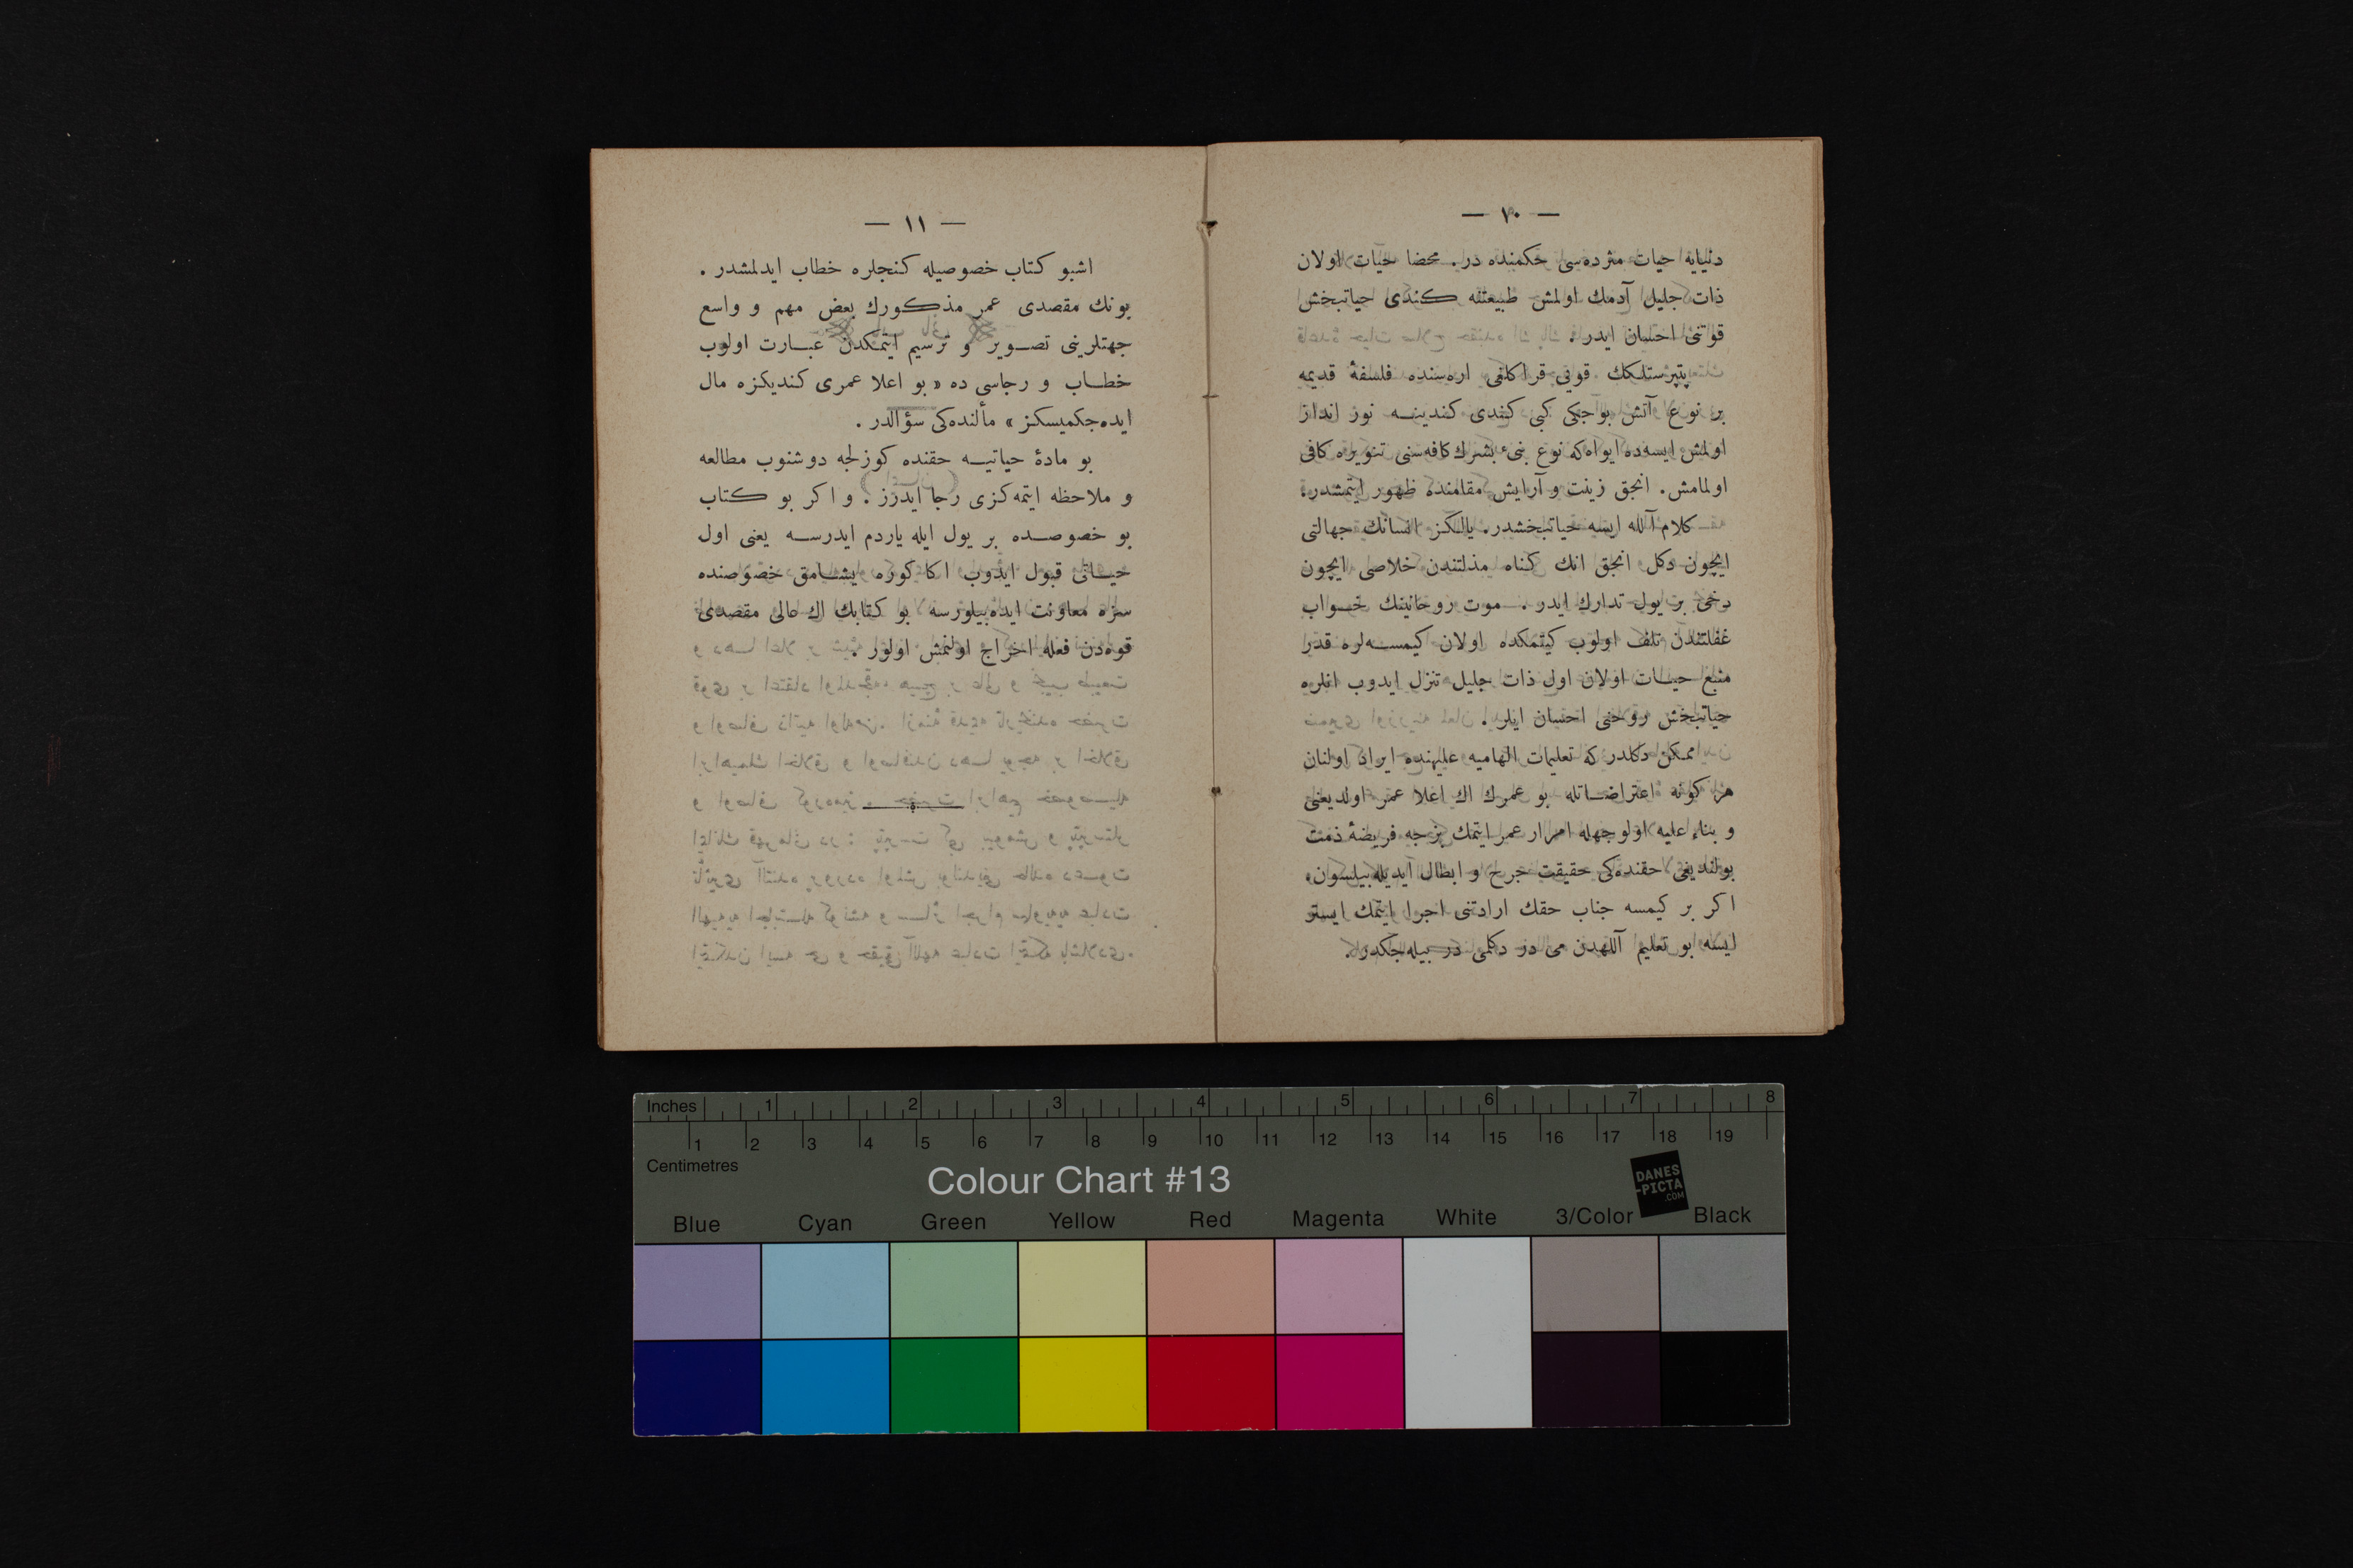 — ١٠ —
دنیایه حیات مژده‌سی حکمنده در. محضا حیات اولان
ذات جلیل آدمك اولمش طبیعتله کندی حیاتبخش
قوتنی احسان ایدر .
پتپرستلکك قوی قراکلغی اره‌سنده فلسفهٔ قدیمه
بر نوع آتش بوجکی کبی کندی کندینه نور انداز
اولمش ایسه‌ده ایواه که نوع بنیٔ بشرك کافه‌سنی تنویره کافی
اولمامش. انجق زینت و آرایش مقامنده ظهور ایتمشدر.
کلام آلله ایسه حیاتبخشدر. یالکز انسانك جهالتی
ایچون دکل انجق انك کناه مذلتندن خلاصی ایچون
دخی بر یول تدارك ایدر . موت روحانینك خواب
غفلتندن تلف اولوب کیتمکده اولان کیمسه‌لره قدر
منبع حیات اولان اول ذات جلیل تنزل ایدوب انلره
حیاتبخش روحنی احسان ایلر .
ممکن دکلدر که تعلیمات الهامیه علیهنده ایراد اولنان
هر کونه اعتراضاتله بو عمرك اك اعلا عمر اولدیغنی
و بناء علیه اولوجهله امرار عمر ایتمك بزجه فریضهٔ ذمت
بولندیغی حقنده‌کی حقیقت جرح و ابطال ایدیله بیلسون.
اکر بر کیمسه جناب حقك ارادتنی اجرا ایتمك ایستر
ایسه بو تعلیم آللهدن می در دکلمی در بیله‌جکدر .
— ١١ —
اشبو کتاب خصوصیله کنجلره خطاب ایدلمشدر .
بونك مقصدی عمر مذکورك بعض مهم و واسع
جهتلرینی تصویر و ترسیم ایتمکدن عبارت اولوب
خطاب و رجاسی ده « بو اعلا عمری کندیکزه مال
ایده‌جکمیسکز » مألنده‌کی سؤالدر .
بو مادهٔ حیاتیه حقنده کوزلجه دوشنوب مطالعه
و ملاحظه ایتمه‌کزی رجا ایدرز . و اکر بو کتاب
بو خصوصده بر یول ایله یاردم ایدرسه یعنی اول
حیاتی قبول ایدوب اکا کوره یشامق خصوصنده
سزه معاونت ایده‌بیلورسه بو کتابك اك عالی مقصدی
قوه‌دن فعله اخراج اولنمش اولور .
Inches 1 2 3 4 5 6 7 8
1 2 3 4 5 6 7 8 9 10 11 12 13 14 15 16 17 18 19
Centimetres
Colour Chart #13
DANES
-PICTA
.COM
Blue Cyan Green Yellow Red Magenta White 3/Color Black